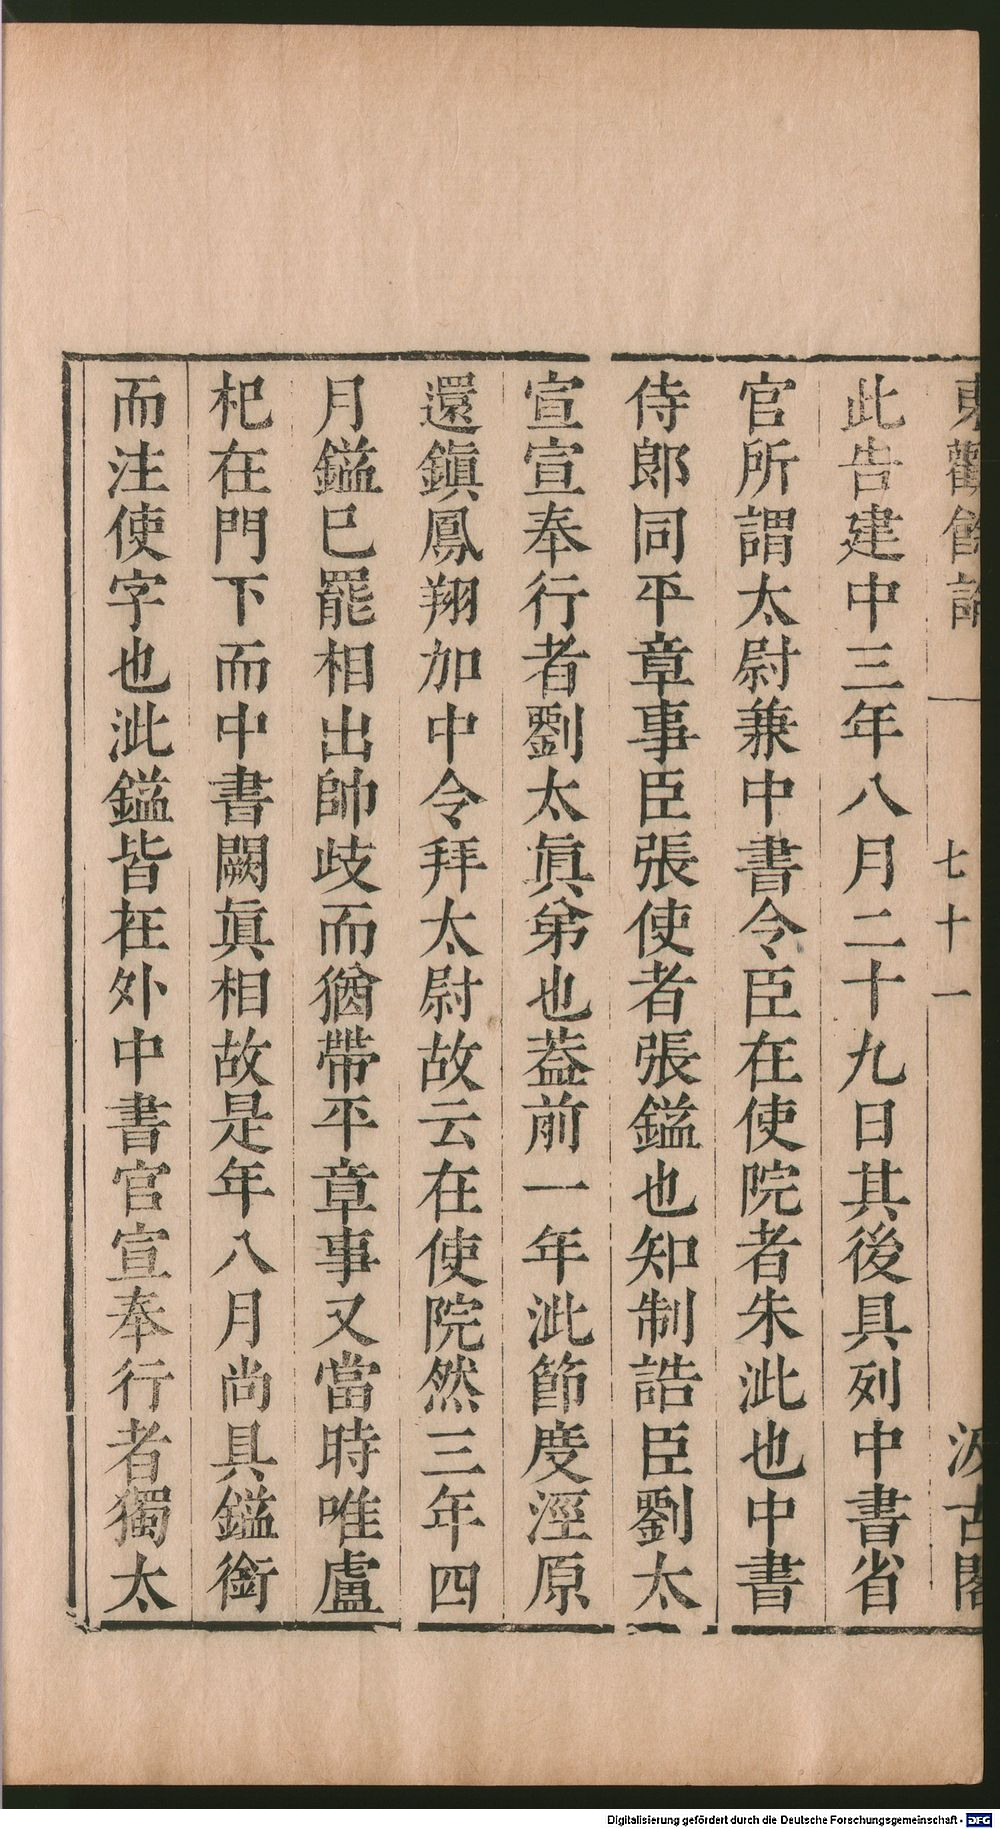 東觀餘論
七十一
汲古閣
此告建中三年八月二十九日其後具列中書省
官所謂太尉兼中書令臣在使院者朱泚也中書
侍郎同平章事臣張使者張鎰也知制誥臣劉太
宣宣奉行者劉太眞弟也葢前一年泚節度涇原
還鎭鳳翔加中令拜太尉故云在使院然三年四
月鎰巳罷相出帥歧而猶帶平章事又當時唯盧
杞在門下而中書闕眞相故是年八月尚具鎰銜
而注使字也泚鎰皆在外中書官宣奉行者獨太
Digitalisierung gefördert durch die Deutsche Forschungsgemeinschaft - DFG